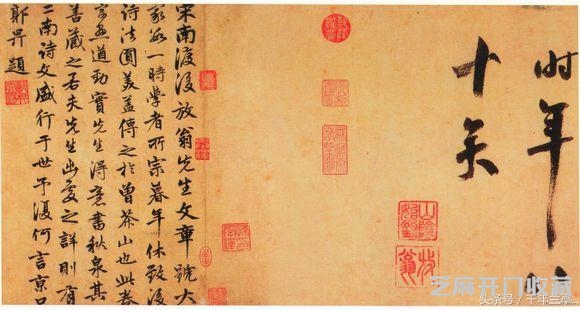 時年八
十矣
山陰始封
放翁
宋南渡後放翁先生文章號大
家為一時學者所宗暮年休致後
詩法圓美蓋傳之於曾茶山也此卷
字畫遒勁實先生得意書秋泉其
善藏之若夫先生出處之詳則有
二南詩文盛行于世予復何言京口
郭畀題
芝麻开门收藏
头条号